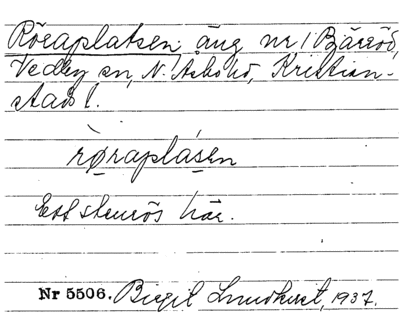 Röraplatsen, äng nr 1 Bäreröd,
Vedby sn, N. Åsbo hd, Kristian-
stads l.
røraplásen
Ett stenrös här.
Nr 5506. Birgit Lundkvist, 1937.